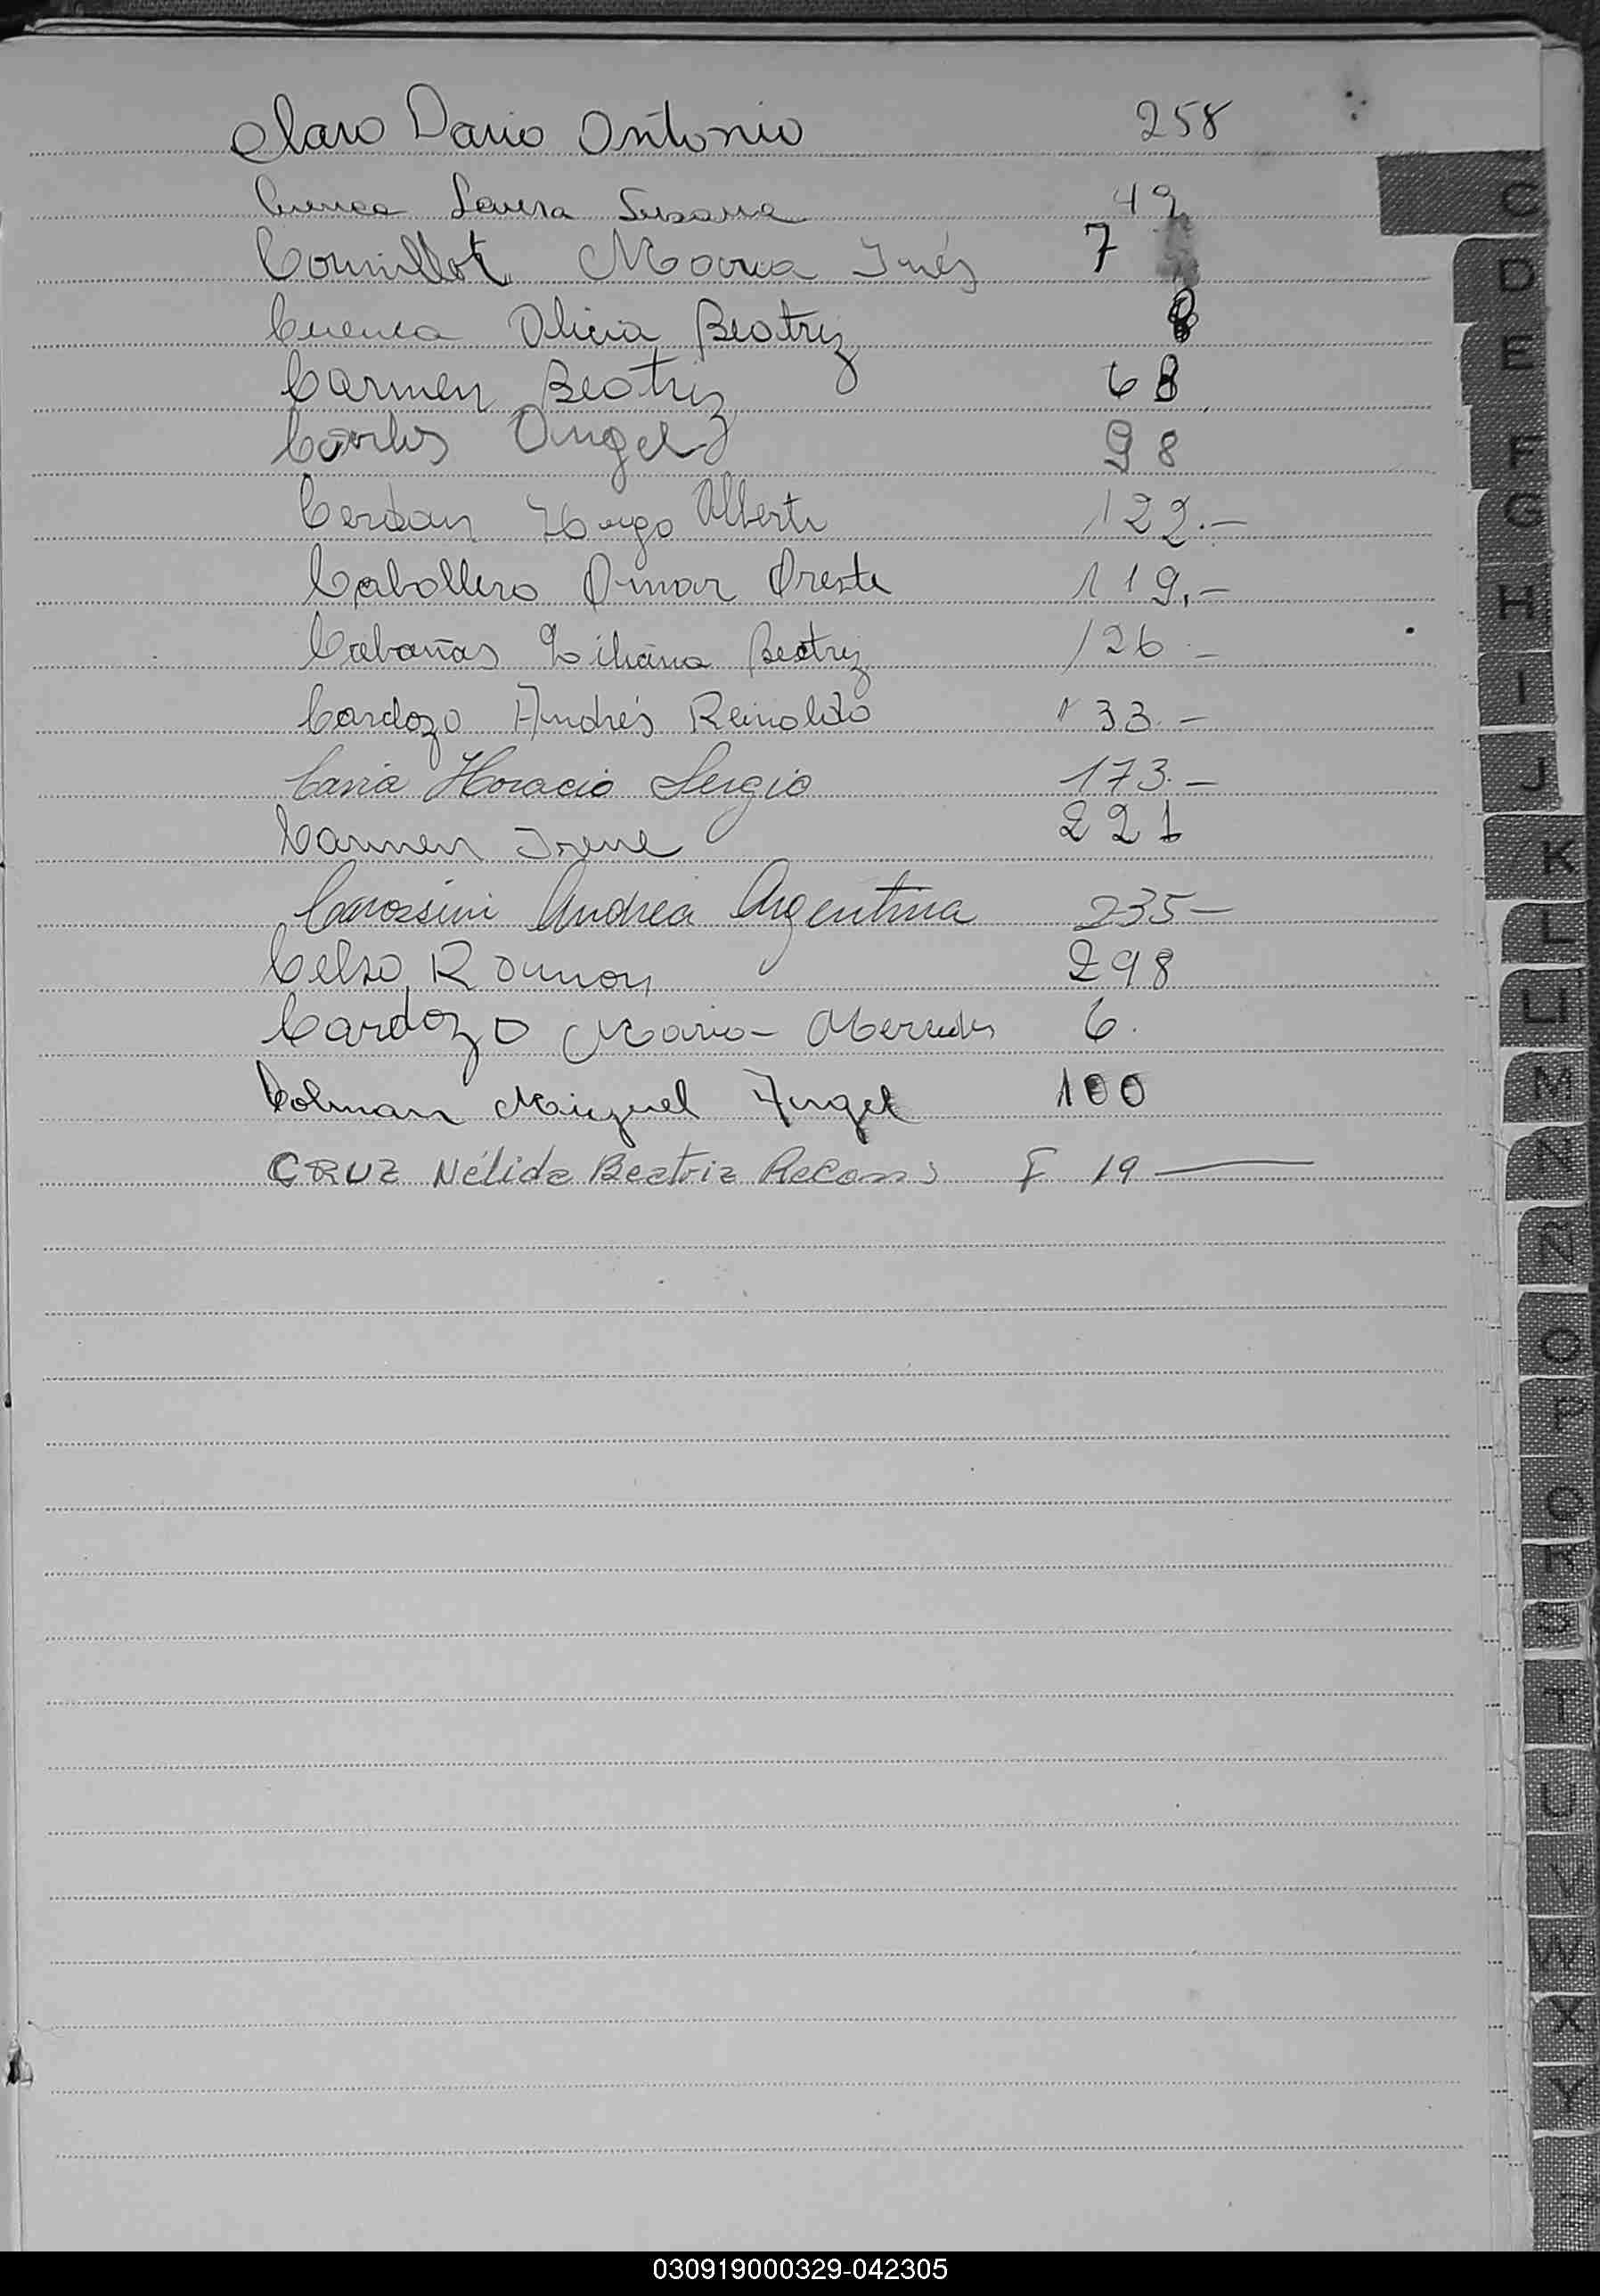 Claro Dario Antonio 258
Cuenca Laura Susana 49
Cornillot Maria Inés 7
Cuenca Alicia Beatriz 8
Carmen Beatriz 68
Carlos Angel 98
Cerdan Hugo Alberto 122.-
Caballero Omar Oreste 119.-
Cabañas Liliana Beatriz 126.-
Cardozo Andrés Reinaldo 133.-
Caria Horacio Sergio 173.-
Carmen Irene 221
Carossini Andrea Argentina 235-
Celso Ramon 298
Cardozo Maria Mercedes 6.
Colman Miguel Angel 100
CRUZ Nélida Beatriz F 19
C
D
E
F
G
H
I
J
K
L
LL
M
N
Ñ
O
P
Q
R
S
T
U
V
W
X
Y
030919000329-042305